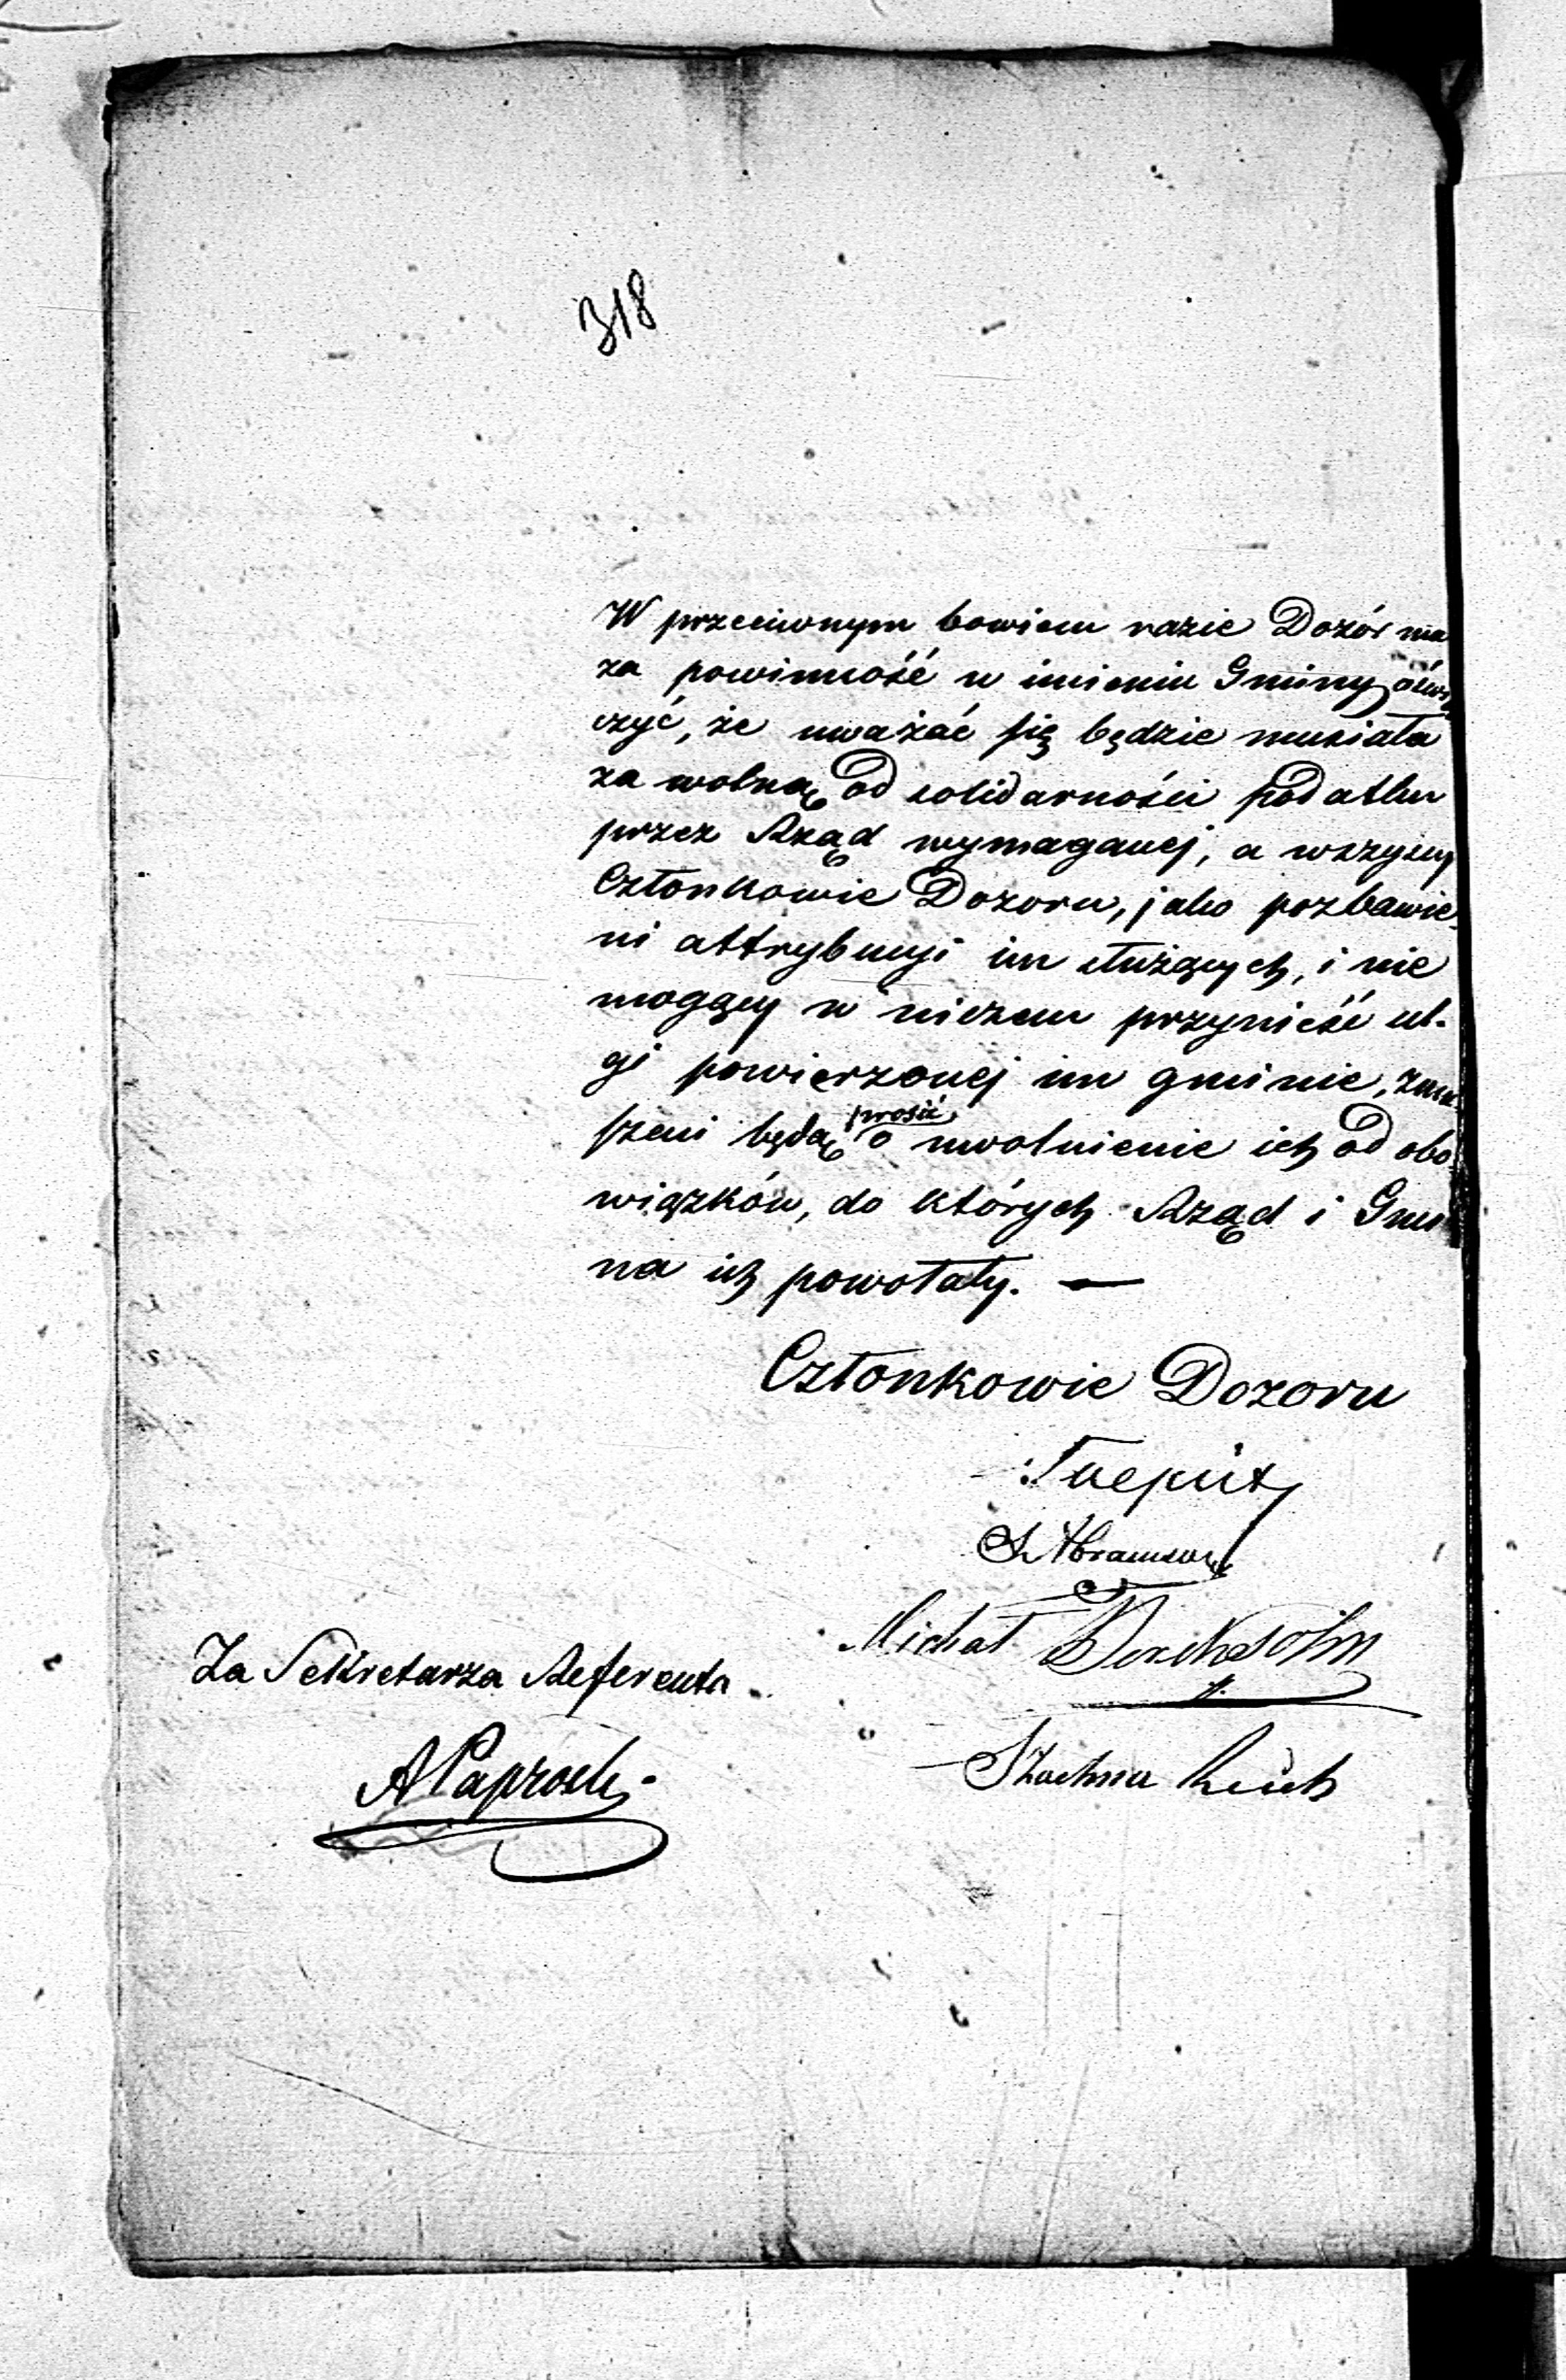 318
W przeciwnym bowiem razie Dozór ma
za powinność w imieniu Gminy
czyć, że uważać się będzie musiała
za wolną od solidarności podatku
przez Rząd wymaganej, a wszyscy
Członkowie Dozoru, jako pozbawie-
ni attrybucyi im służących, i nie
mogący w niczem przynieść ul-
gi powierzonej im gminie, zmu-
szeni będą prosić o uwolnienie ich od obo-
wiązków, do których Rząd i Gmi-
na ich powołały. —
Członkowie Dozoru
Abramson
Michał
Za Sekretarza Referenta
A Paprocki
Szachna